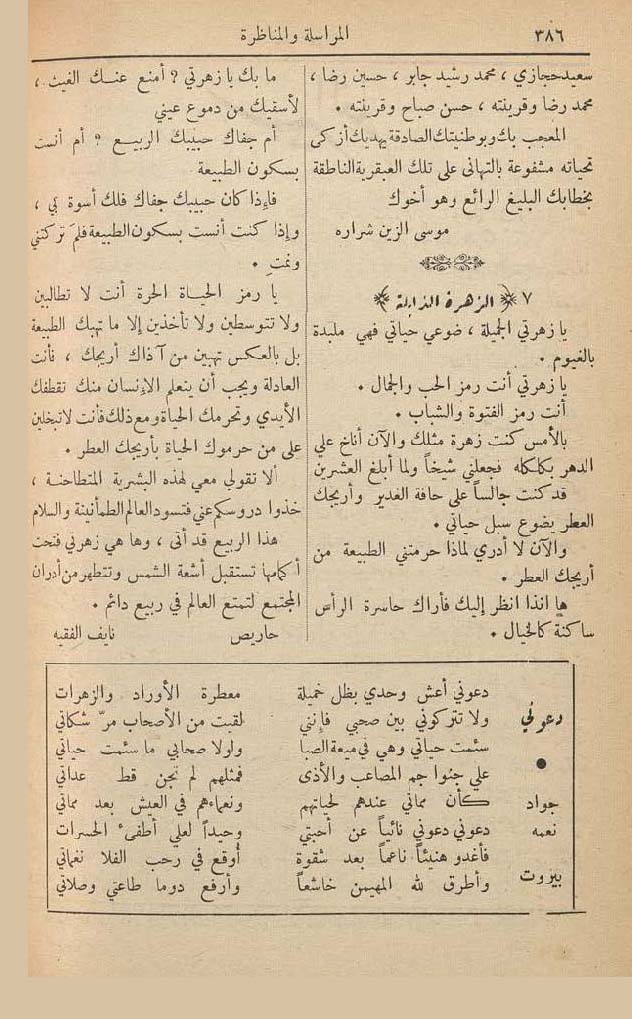 ٣٨٦
المراسلة والمناظرة
سعيد حجازي ، محمد رشيد جابر ، حسين رضا ،
محمد رضا وقرينته ، حسن صباح وقرينته .
المعجب بك وبوطنيتك الصادقة يهديك أزكى
تحياته مشفوعة بالتهاني على تلك العبقرية الناطقة
بخطابك البليغ الرائع وهو أخوك
موسى الزين شراره
٧ الزهرة الذابلة
يا زهرتي الجميلة ، ضوعي حياتي فهي ملبدة
بالغيوم .
يا زهرتي أنت رمز الحب والجمال .
أنت رمز الفتوة والشباب .
بالأمس كنت زهرة مثلك والآن أناخ علي
الدهر بكلكله فجعلني شيخاً ولما أبلغ العشرين
قد كنت جالساً على حافة الغدير وأريجك
العطر يضوع سبل حياتي .
والآن لا أدري لماذا حرمتني الطبيعة من
أريجك العطر .
ها انذا انظر إليك فأراك حاسرة الرأس
ساكنة كالخيال .
ما بك يا زهرتي ? أمنع عنك الغيث ،
لأسقيك من دموع عيني
أم جفاك حبيبك الربيع ? أم أنست
بسكون الطبيعة
فإذا كان حبيبك جفاك فلك أسوة بي ،
وإذا كنت أنست بسكون الطبيعة فلمَ تركتني
ونمتِ .
يا رمز الحياة الحرة أنت لا تطالبين
ولا تتوسطين ولا تأخذين إلا ما تهبك الطبيعة
بل بالعكس تهبين من آذاك أريجك ، فأنت
العادلة ويجب أن يتعلم الإنسان منك تقطفك
الأيدي وتحرمك الحياة ومع ذلك فأنت لا تبخلين
على من حرموك الحياة بأريجك العطر .
ألا تقولي معي لهذه البشرية المتطاحنة ،
خذوا دروسكم عني فتسود العالم الطمأنينة والسلام
هذا الربيع قد أتى ، وها هي زهرتي فتحت
أكمامها تستقبل أشعة الشمس وتتطهر من أدران
المجتمع لتمتع العالم في ربيع دائم .
حاريص نايف الفقيه
دعوني
جواد
نعمه
بيروت
دعوني أعش وحدي بظل خميلة معطرة الأوراد والزهرات
ولا تتركوني بين صحبي فإنني لقيت من الأصحاب مرّ شكاتي
سئمت حياتي وهي في ميعة الصبا ولولا صحابي ما سئمت حياتي
علي جنوا جم المصاعب والأذى فمثلهم لم تجن قط عداتي
كأن مماتي عندهم لحياتهم ونعماءهم في العيش بعد مماتي
دعوني دعوني نائياً عن أحبتي وحيداً لعلي أطفىء الحسرات
فأغدو هنيئاً ناعماً بعد شقوة أوقع في رحب الفلا نغماتي
وأطرق لله المهيمن خاشعاً وأرفع دوما طاعتي وصلاتي